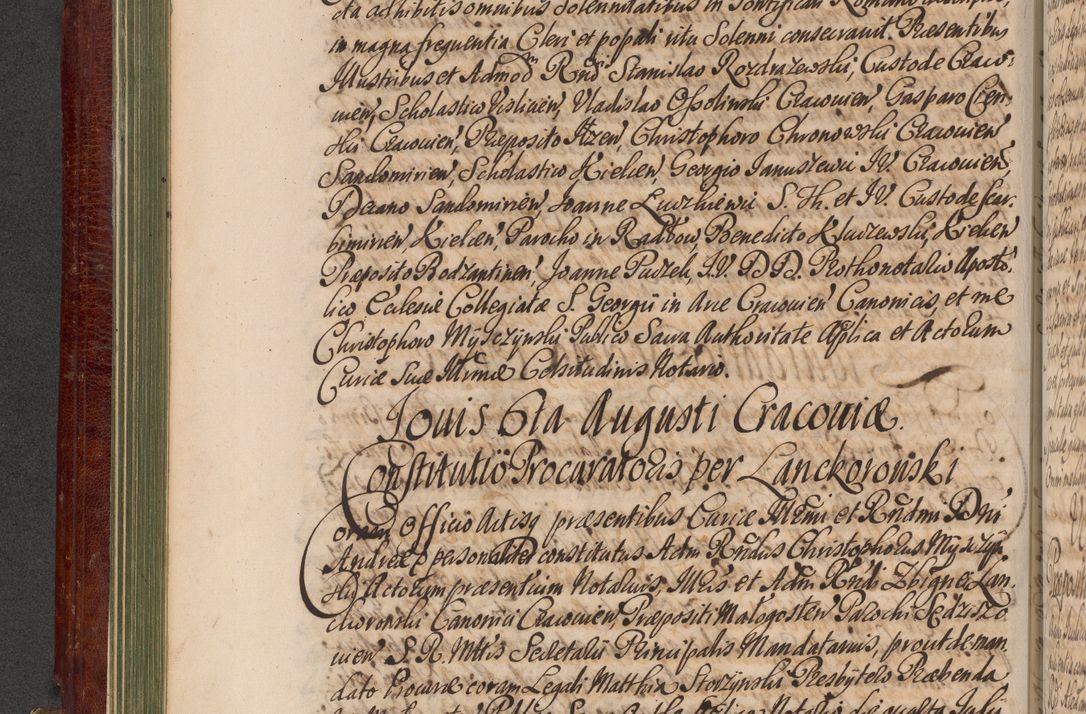 cta adhibitis omnibus Solennitatibus in Pontificali Romano
in magna frequentia Cleri et populi ritu Solenni consecravit. Præsentibus
Illustribus et Admod Rnd Stanislao Rozdrazewski, Custode Craco-
vien, Scholastico Vislicien, Vladislao Ossolinski Cracovien, Gasparo Cien-
ski Cracovien, Præposito Ilzen, Christophoro Chronowski Cracovien
Sandomirien, Scholastico Kielcen, Georgio Januszewic J.V. Cracovien,
Decano Sandomirien, Joanne Ludzkiewic S. Th. et J.V. Custode Scar-
bimirien Kielcen, Parocho in Radłow, Benedicto Kluczewski, Kielcen
Præposito Bodzantinen, Joanne Pudzek, J.V. DD. Prothonotario Aposto-
lico Ecclesiæ Collegiatæ S. Georgii in Arce Cracovien Canonicis, et me
Christophoro Mysczynski Publico Sacra Authoritate Aplica et Actorum
Curiæ Suæ Illmæ Celsitudinis Notario.
Jovis 6ta Augusti Cracoviæ.
Constitutio Procuratoris per Lanckoronski
Coram Officio Actisq præsentibus Curiæ Illmi et Rndmi Dni
Andreæ personaliter constitutus Adm Rndus Christophorus Mysczyn-
ski Actorum præsentium Notarius, Illris et Adm Rndi Zbignei Lan-
ckoronski Canonici Cracovien, Præpositi Małogosten Parochi Sędziszo-
vien S. R. Mttis Secretarii Principalis Mandatarius, prout de man-
dato Procuræ coram Legali Matthia Storzynski Presbytero Præbenda